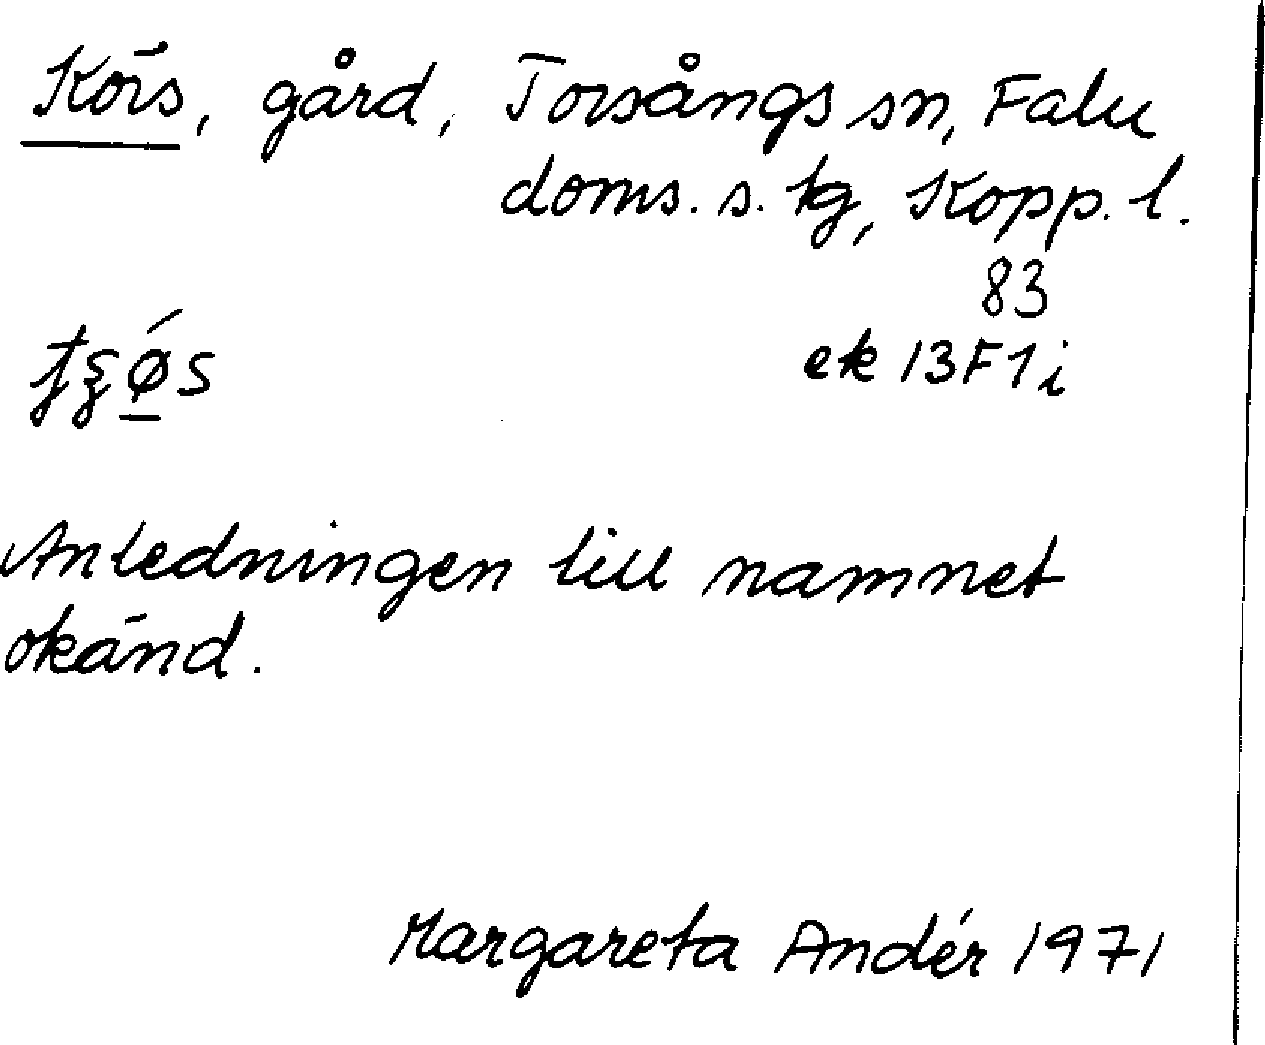 Körs, gård, Torsångs sn, Falu
doms. s. tg, Kopp. l.
83
ek 13F1i
Anledningen till namnet
okänd.
Margareta Andér 1971